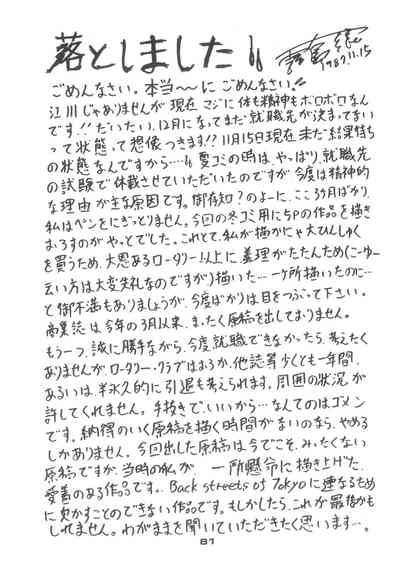 落としました
1987.11.15
ごめんなさい。本当〜〜にごめんなさい。
江川じゃありませんが現在マジに体も精神もボロボロなん
です!!だいたい、12月になってまだ就職先が決まってない
って状態って想像つきます!?11月15日現在未だ結果待ち
の状態なんですから…夏コミの時は、やっぱり、就職先
の試験で休載させていただいたのですが今度は精神的
な理由が主な原因です。御存知?のよーに、ここ3ヶ月ばかり、
私はペンをにぎっとりません。今回の冬コミ用に5Pの作品を描き
おろすのがやっとでした。これとて、私が描かにゃ大ひんしゅく
を買うため、大恩あるロータリー以上に義理がたたんため(こーゆー
云い方は大変失礼なのですが)描いた…一ヶ所描いたのに…
と御不満もありましょうが、今度ばかりは目をつぶって下さい。
商業誌は今年の3月以来、まったく原稿を出しておりません。
もう一つ、誠に勝手ながら、今度就職できなかったら、考えたく
ありませんが、ロータリー・クラブはおろか、他誌等少くとも一年間、
あるいは、半永久的に引退も考えられます。周囲の状況が
許してくれません。手抜きで、いいから…なんてのはゴメン
です。納得のいく原稿を描く時間がないのなら、やめる
しかありません。今回出した原稿は今でこそ、みったくない
原稿ですが、当時の私が、一所懸命に描き上げた、
愛着のある作品です。Back streets of Tokyoに連なるため
に欠かすことのできない作品です。もしかしたら、これが最後かも
しれません。わがままを聞いていただきたく思います…。
87